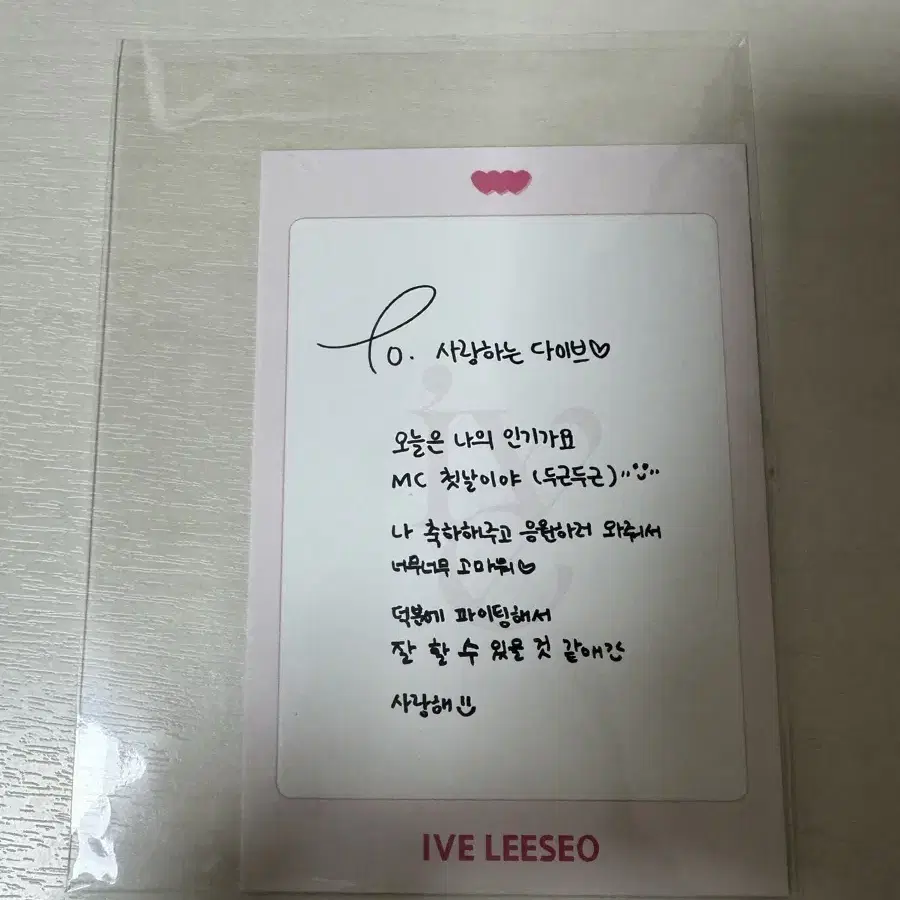 To. 사랑하는 다이브♡
오늘은 나의 인기가요
MC 첫날이야 (두근두근)
나 축하해주고 응원하러 와줘서
너무너무 고마워♡
덕분에 파이팅해서
잘 할 수 있을 것 같애
사랑해
IVE LEESEO